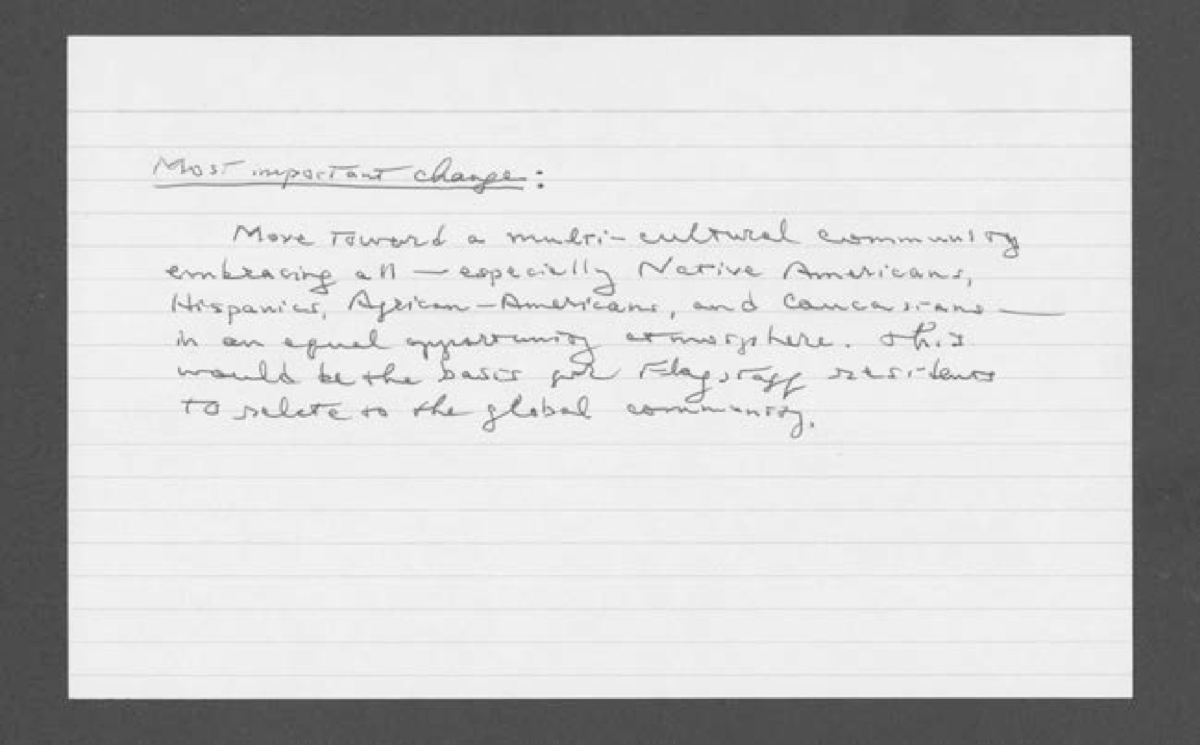 Most important change:
Move toward a multi-cultural community
embracing all — especially Native Americans,
Hispanics, African-Americans, and Caucasians —
in an equal opportunity atmosphere. This
would be the basis for Flagstaff residents
to relate to the global community.